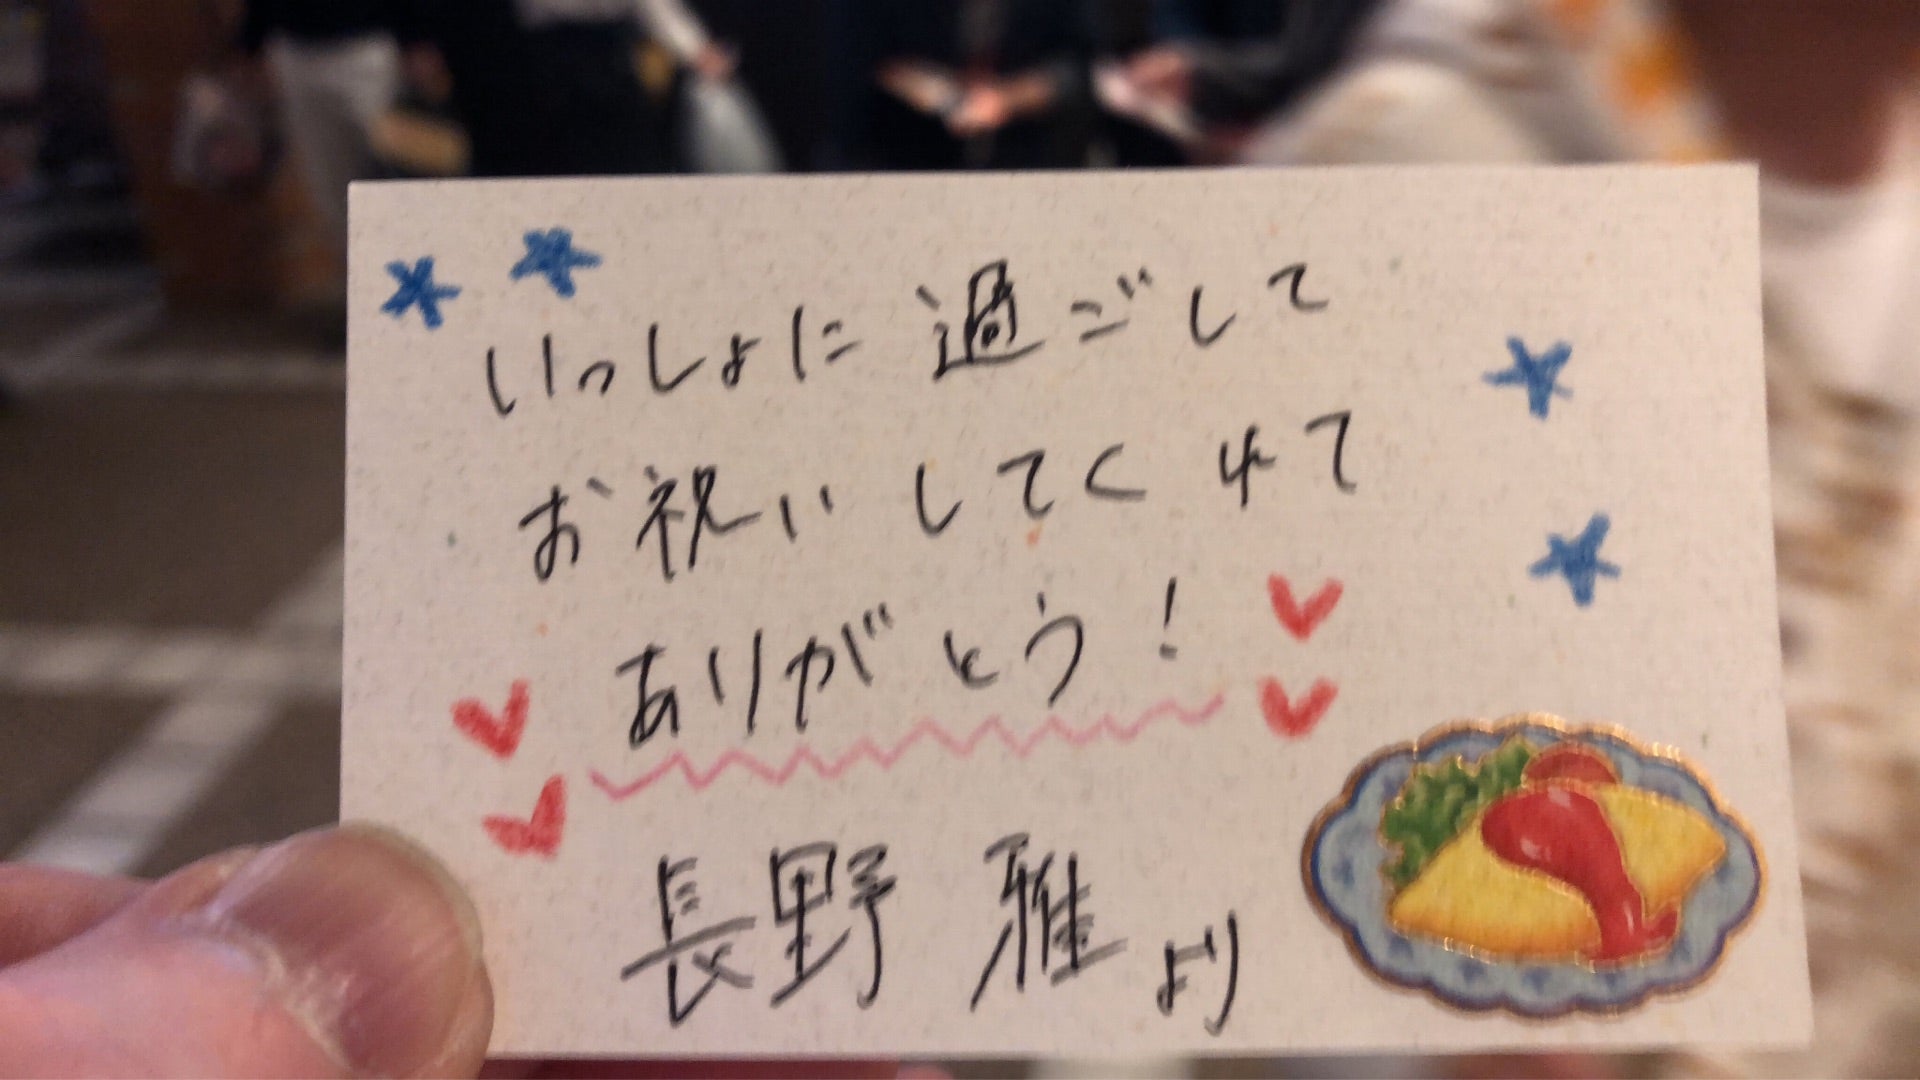 いっしょに過ごして
お祝いしてくれて
ありがとう!
長野 雅より